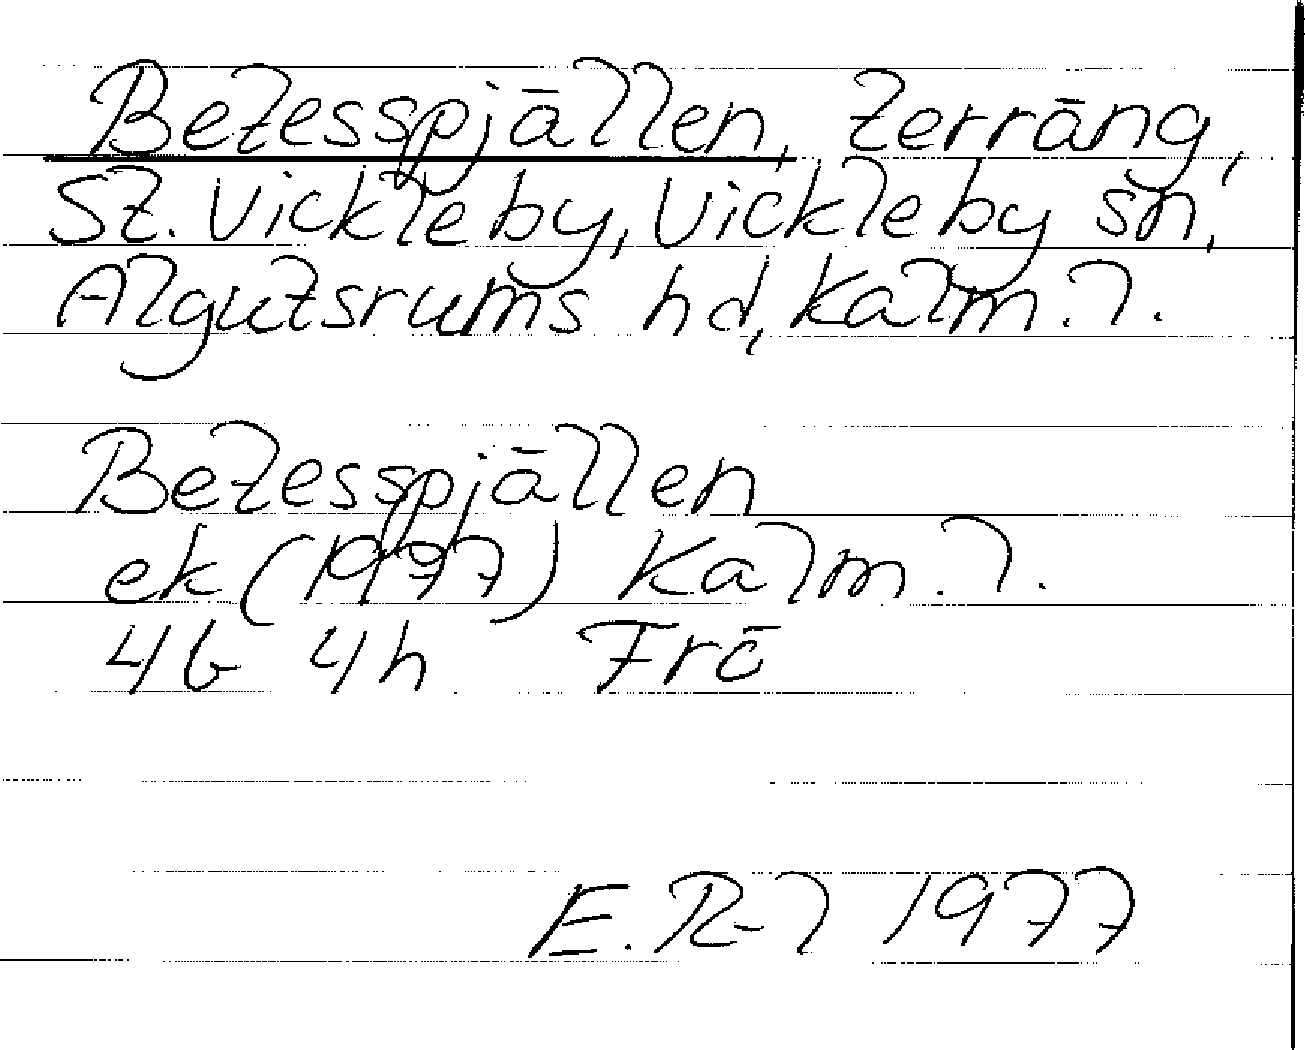 Betesspjällen, terräng,
St. Vickleby, Vickleby sn,
Algutsrums hd, Kalm. l.
Betesspjällen
ek (1977) Kalm. l.
4b 4h Frö
E. R-l 1977